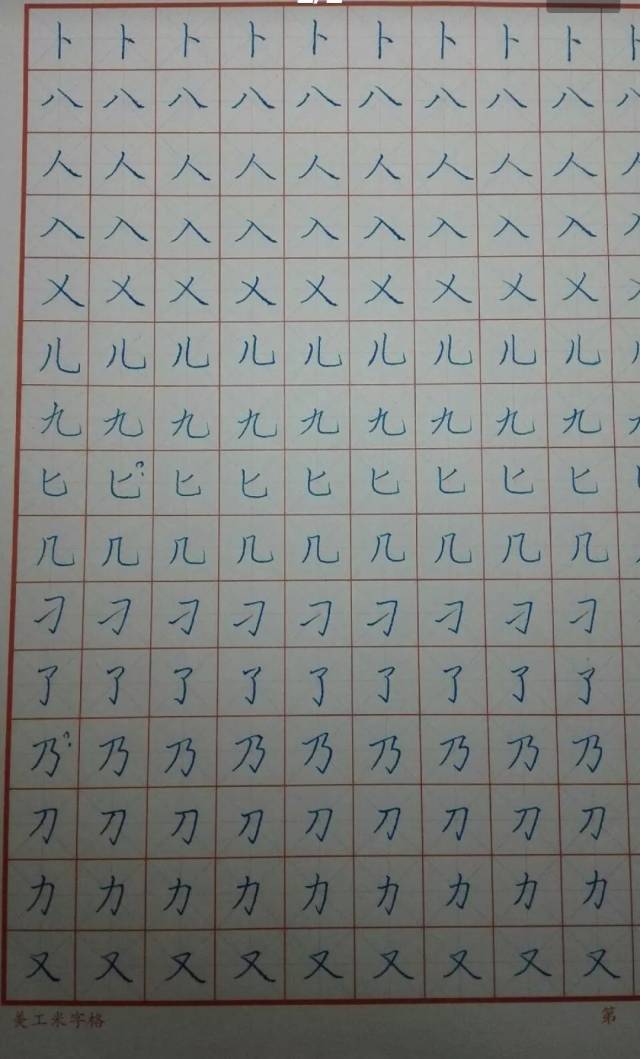 卜卜卜卜卜卜卜卜卜卜
八八八八八八八八八八
人人人人人人人人人人
入入入入入入入入入入
乂乂乂乂乂乂乂乂乂
儿儿儿儿儿儿儿儿儿
九九九九九九九九九九
匕匕?匕匕匕匕匕匕匕
几几几几几几几几几
刁刁刁刁刁刁刁刁刁
了了了了了了了了了
乃?乃乃乃乃乃乃乃乃
刀刀刀刀刀刀刀刀刀
力力力力力力力力力
又又又又又又又又又
美工米字格 第